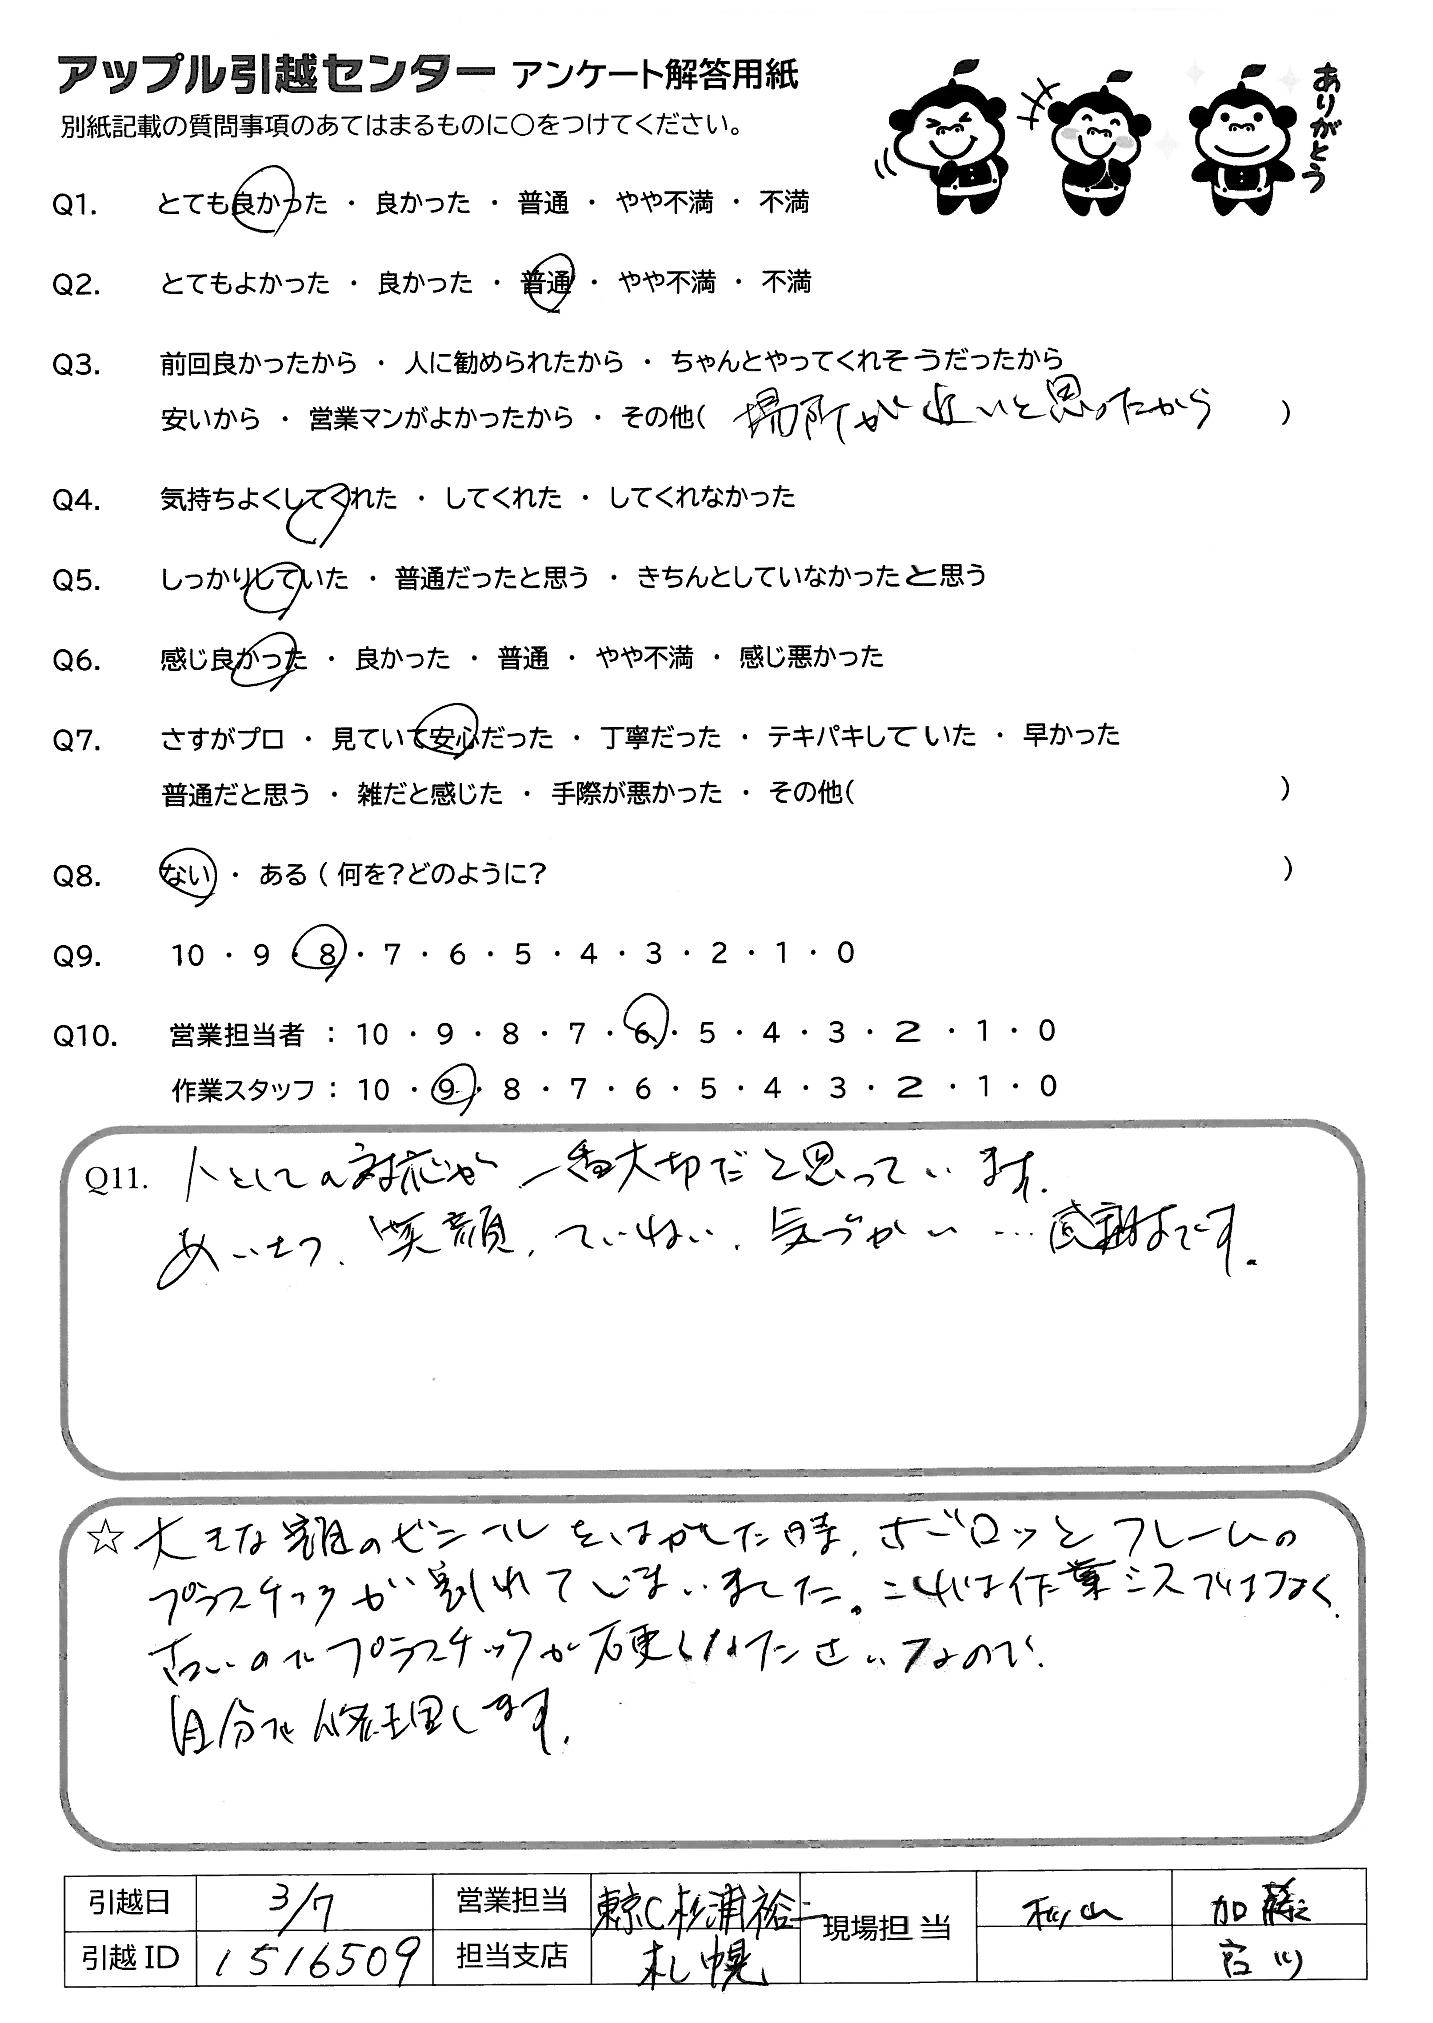 アップル引越センター アンケート解答用紙
ありがとう
別紙記載の質問事項のあてはまるものに〇をつけてください。
Q1. とても良かった ・ 良かった ・ 普通 ・ やや不満 ・ 不満
Q2. とてもよかった ・ 良かった ・ 普通 ・ やや不満 ・ 不満
Q3. 前回良かったから ・ 人に勧められたから ・ ちゃんとやってくれそうだったから
安いから ・ 営業マンがよかったから ・ その他( 場所が近いと思ったから )
Q4. 気持ちよくしてくれた ・ してくれた ・ してくれなかった
Q5. しっかりしていた ・ 普通だったと思う ・ きちんとしていなかったと思う
Q6. 感じ良かった ・ 良かった ・ 普通 ・ やや不満 ・ 感じ悪かった
Q7. さすがプロ ・ 見ていて安心だった ・ 丁寧だった ・ テキパキしていた ・ 早かった
普通だと思う ・ 雑だと感じた ・ 手際が悪かった ・ その他( )
Q8. ない ・ ある ( 何を?どのように? )
Q9. 10 ・ 9 ・ 8 ・ 7 ・ 6 ・ 5 ・ 4 ・ 3 ・ 2 ・ 1 ・ 0
Q10. 営業担当者 : 10 ・ 9 ・ 8 ・ 7 ・ 6 ・ 5 ・ 4 ・ 3 ・ 2 ・ 1 ・ 0
作業スタッフ : 10 ・ 9 ・ 8 ・ 7 ・ 6 ・ 5 ・ 4 ・ 3 ・ 2 ・ 1 ・ 0
Q11. 人としての対応が一番大切だと思っています。
あいさつ、笑顔、ていねい、気づかい…感謝です。
☆ 大きな額のビニールをはがした時、フレームの
プラスチックが割れてしまいました。これは作業ミスではなく、
古いのでプラスチックが硬くなったせいなので、
自分で修理します。
引越日 3/7 営業担当 東京C杉浦裕二 現場担当 秋山 加藤
引越ID 1516509 担当支店 札幌 宮川